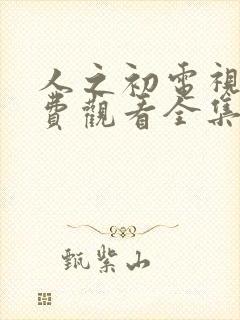 人之初電視
費觀看全集
甄紫山